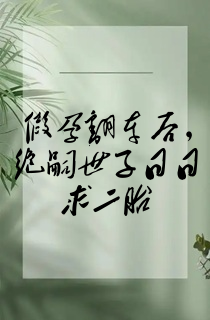 假孕翻车后，
绝嗣世子日日
求二胎